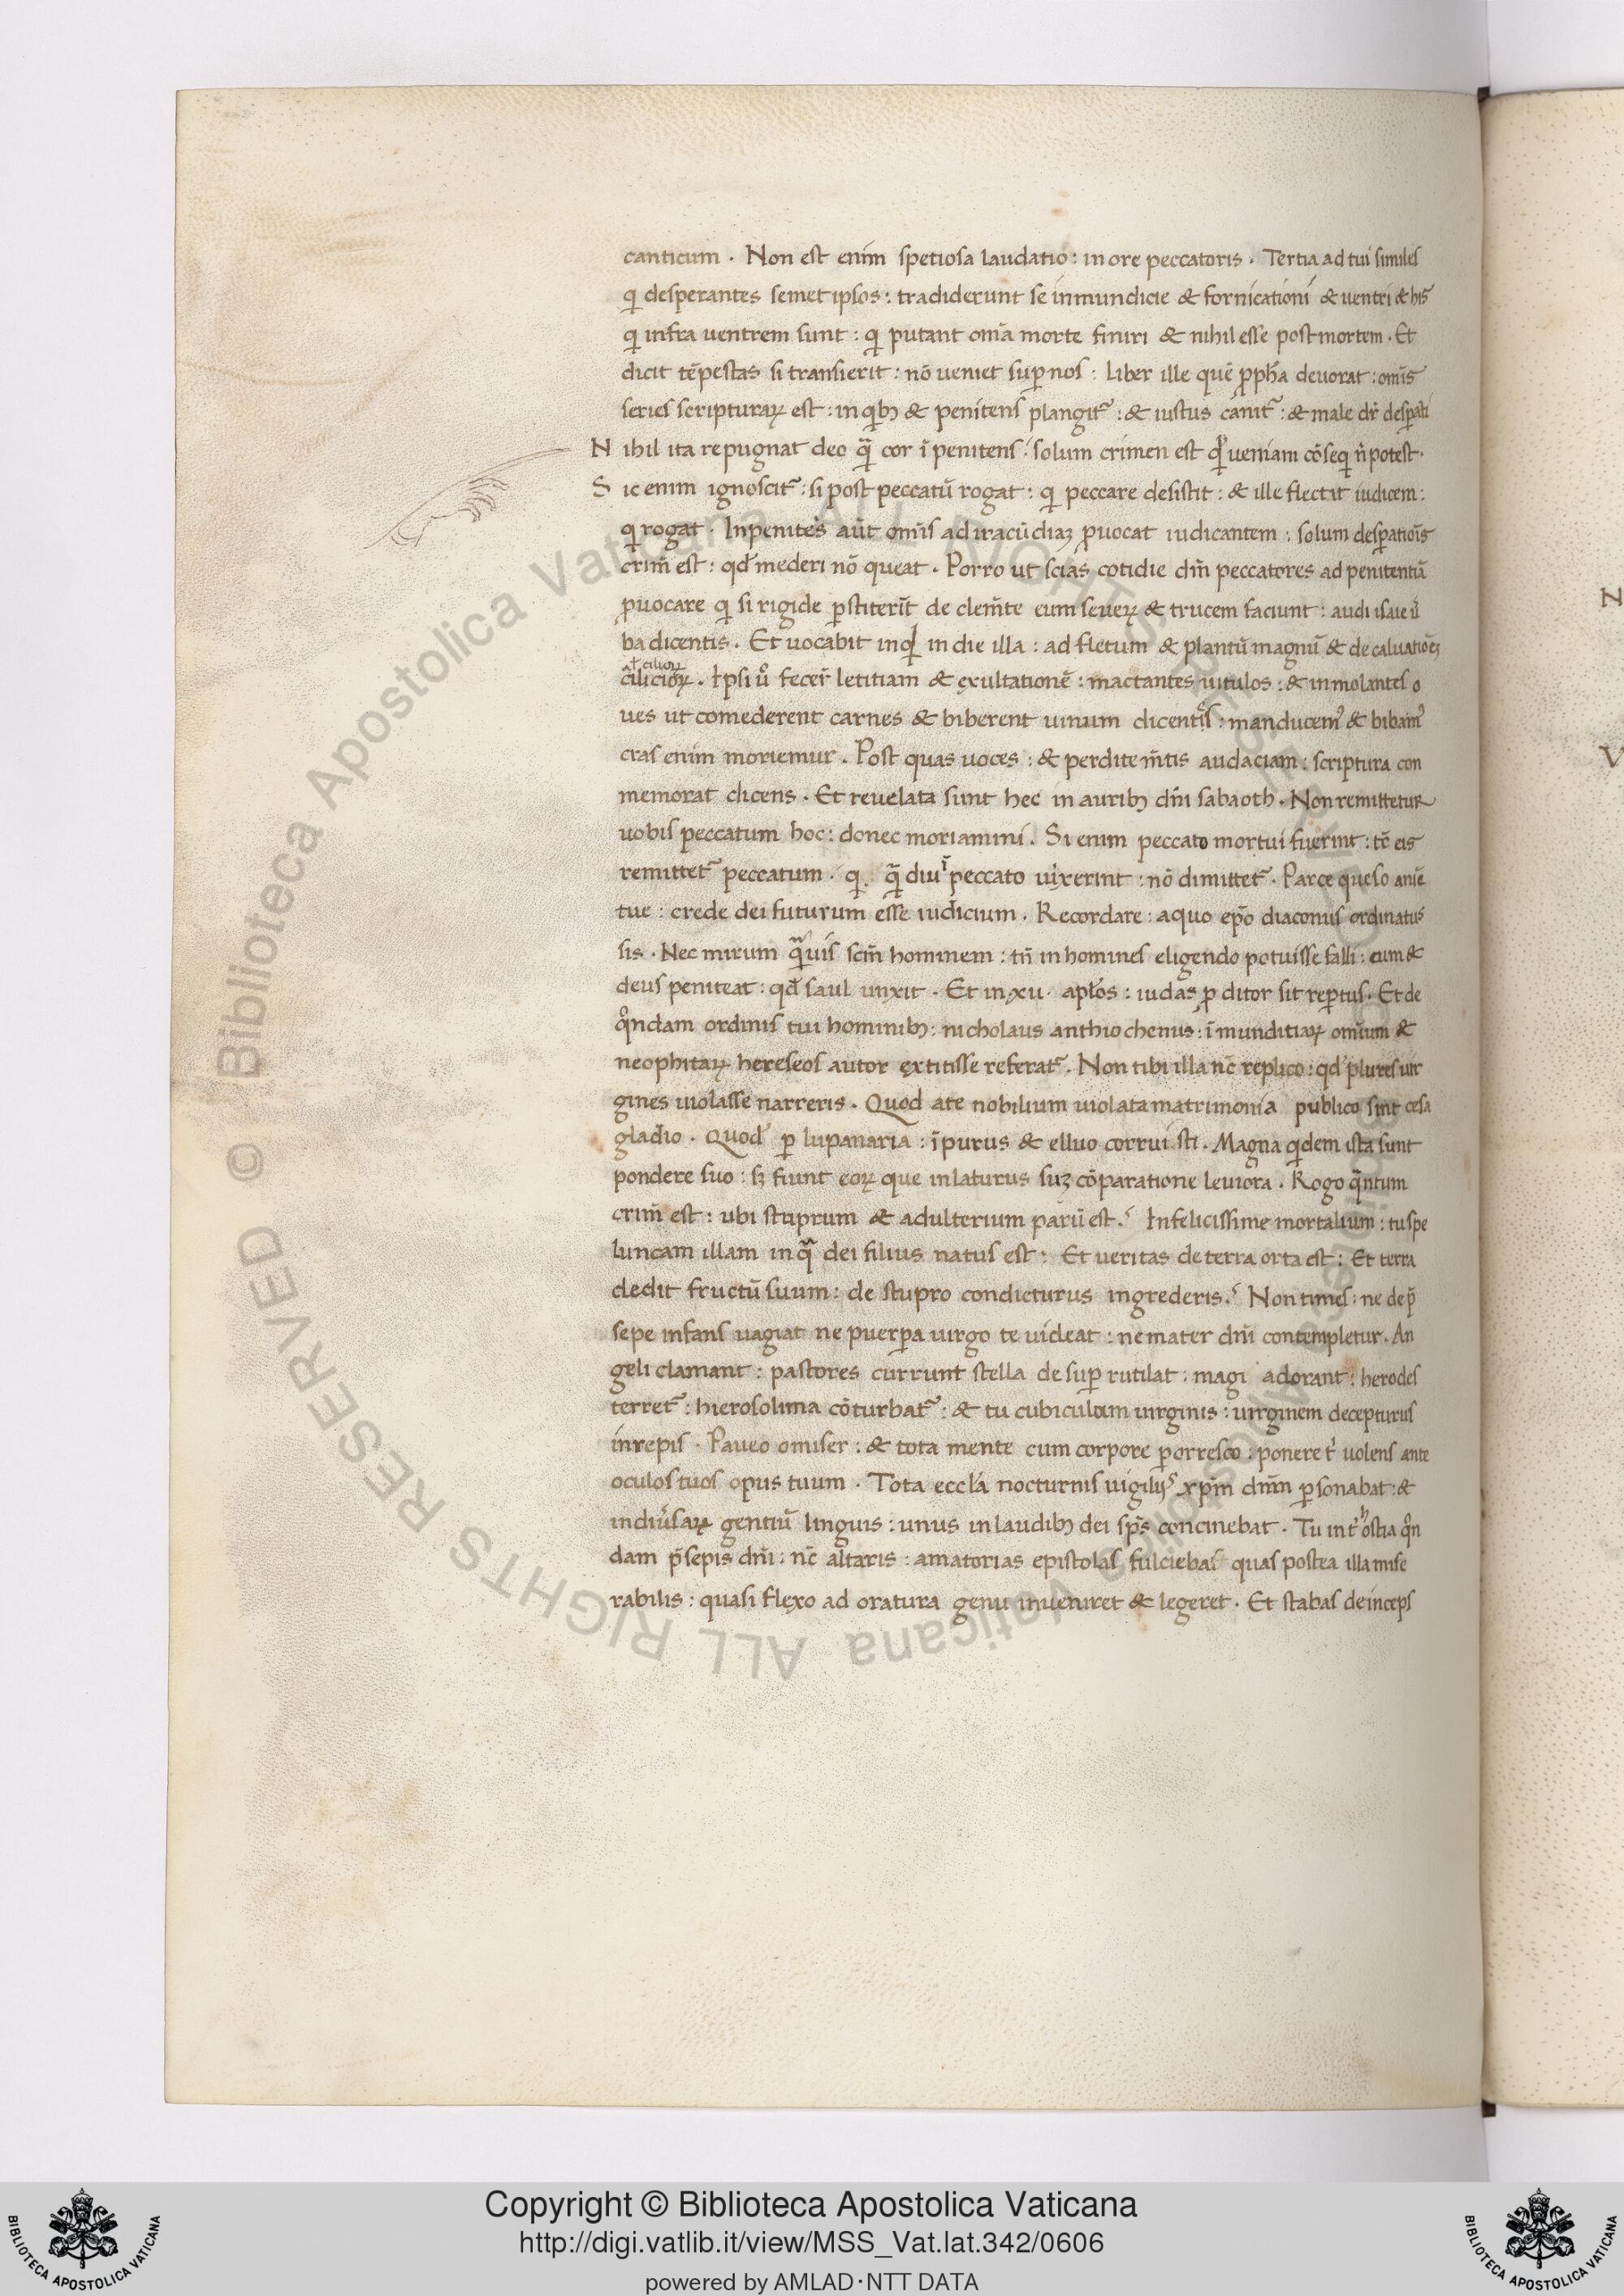 canticum . Non est enim spetiosa laudatio : in ore peccatoris . Tertia ad tui similes
q̃ desperantes semet ipsos : tradiderunt se inmundicie & fornicationi & uentri & his
q̃ infra uentrem sunt : q̃ putant om̃a morte finiri & nihil esse post mortem . Et
dicit tẽpestas si transierit : nõ ueniet sup̱ nos : Liber ille quẽ p̱ph̃a deuorat : om̃is
series scripturaꝝ est : in qb; & penitens plangit᷑ : & iustus canit᷑ : & male dr̃ desp̱ati
Nihil ita repugnat deo q̃ cor ĩpenitens : solum crimen est qđ ueniam cõseq̃ ñ potest .
Sic enim ignoscit᷑ : si post peccatũ rogat : q̃ peccare desistit : & ille flectit iudicem :
q̃ rogat . Inpenitẽs aũt om̃is ad iracũdiaꝫ ꝓuocat iudicantem : solum desp̱atiõis
crim̃ est : qđ mederi nõ queat . Porro ut scias cotidie dm̃ peccatores ad penitentiã
ꝓuocare q̃ si rigide p̱stiterĩt de clem̃te eum seueꝝ & trucem faciunt : audi isaie ũ
ba dicentis . Et uocabit inqđ in die illa : ad fletum & plantũ magnũ & de caluatiõeꝫ
al̃ cilioꝝ
cilicioꝝ . Ipsi uº fecer̃ letitiam & exultationẽ : mactantes uitulos : & inmolantes o
ues ut comederent carnes & biberent uinum dicentẽs : manducem᷒ & bibam᷒
cras enim moriemur . Post quas uoces : & perdite m̃tis audaciam : scriptura con
memorat dicens . Et reuelata sunt hec in aurib; dñi sabaoth . Non remittetur
uobis peccatum hoc : donec moriamini . Si enim peccato mortui fuerint : tc̃ eis
remittet᷑ peccatum . q̃ . q̃ diu ĩ peccato uixerint : nõ dimittet᷑ . Parce queso anĩe
tue : crede dei futurum esse iudicium . Recordare : a quo ep̃o diaconus ordinatus
sis . Nec mirum q̃uis sc̃m hominem : tñ in homines eligendo potuisse falli : cum &
deus peniteat : qđ saul unxit . Et in .xii . apl̃os : iudas ꝓditor sit rep̱tus . Et de
qºndam ordinis tui hominib; : nicholaus anthiochenus : ĩmunditiaꝝ om̃ium &
neophitaꝝ hereseos autor extitisse referat᷑ . Non tibi illa nc̃ replico : qđ plures uir
gines uiolasse narreris . Quod a te nobilium uiolata matrimonia publico sint cesa
gladio . Quod p̱ lupanaria : ĩpurus & elluo corruisti . Magna qdem ista sunt
pondere suo : sꝫ fiunt eoꝝ que inlaturus suꝫ cõparatione leuiora . Rogo q̃ntum
crim̃ est : ubi stuprum & adulterium parũ est . Infelicissime mortalium : tu spe
luncam illam in q̃ dei filius natus est : Et ueritas de terra orta est : Et terra
dedit fructũ suum : de stupro condicturus ingrederis . Non times : ne de p̃
sepe infans uagiat ne puerp̱a uirgo te uideat : ne mater dñi contempletur . An
geli clamant : pastores currunt stella de sup̱ rutilat : magi adorant : herodes
terret᷑ : hierosolima cõturbat᷑ : & tu cubiculum uirginis : uirginem decepturus
inrepis . Paueo o miser : & tota mente cum corpore p̱orresco : ponere t̃ uolens ante
oculos tuos opus tuum . Tota eccl̃a nocturnis uigiliis xp̃m dñm p̱sonabat : &
in diũsaꝝ gentiũ linguis : unus in laudib; dei sp̃s concinebat . Tu int̃ hostia qºn
dam p̃sepis dñi : nc̃ altaris : amatorias epistolas fulciebas quas postea illa mise
rabilis : quasi flexo ad oratura genu inueniret & legeret . Et stabas deinceps
N
V
© Biblioteca Apostolica Vaticana ALL RIGHTS RESERVED
Copyright © Biblioteca Apostolica Vaticana
http://digi.vatlib.it/view/MSS_Vat.lat.342/0606
powered by AMLAD·NTT DATA
BIBLIOTECA APOSTOLICA VATICANA
BIBLIOTECA APOSTOLICA VATICANA